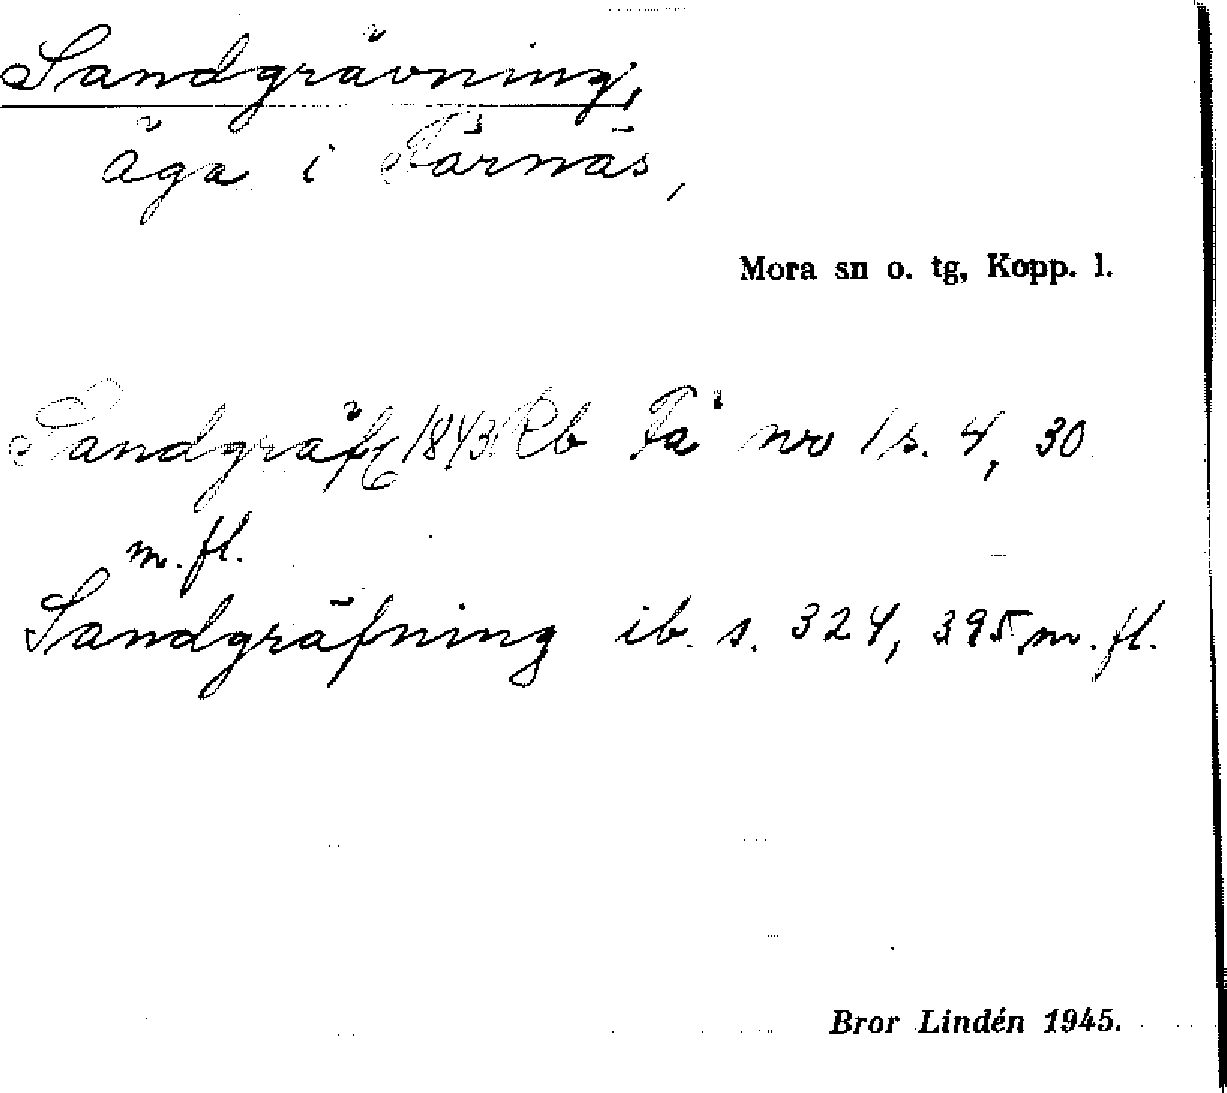 Sandgrävning,
äga i Färnäs,
Mora sn o. tg, Kopp. l.
Sandgräfg 1843 Rb Fä nr 1 s. 4, 30
m. fl.
Sandgräfning ib. s. 324, 395 m. fl.
Bror Lindén 1945.